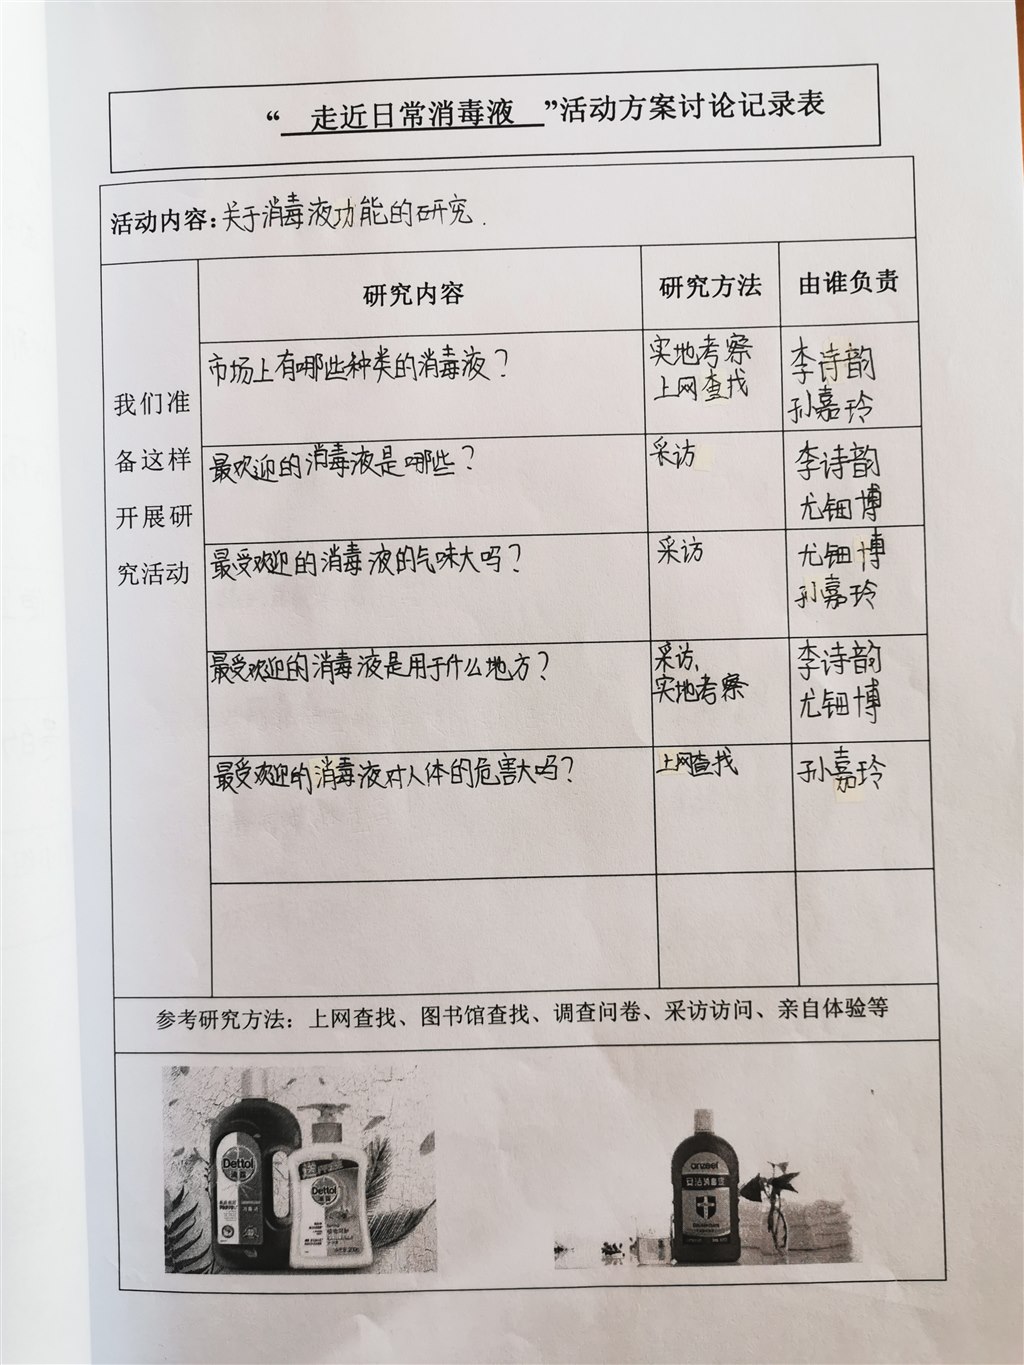 “ 走近日常消毒液 ”活动方案讨论记录表
活动内容:关于消毒液功能的研究.
研究内容
研究方法
由谁负责
我们准
备这样
开展研
究活动
市场上有哪些种类的消毒液?
实地考察
上网查找
李诗韵
孙嘉玲
最欢迎的消毒液是哪些?
采访
李诗韵
尤钿博
最受欢迎的消毒液的气味大吗?
采访
尤钿博
孙嘉玲
最受欢迎的消毒液是用于什么地方?
采访、
实地考察
李诗韵
尤钿博
最受欢迎的消毒液对人体的危害大吗?
上网查找
孙嘉玲
参考研究方法：上网查找、图书馆查找、调查问卷、采访访问、亲自体验等
Dettol
滴露
Dettol
滴露
anzeel
安洁消毒液